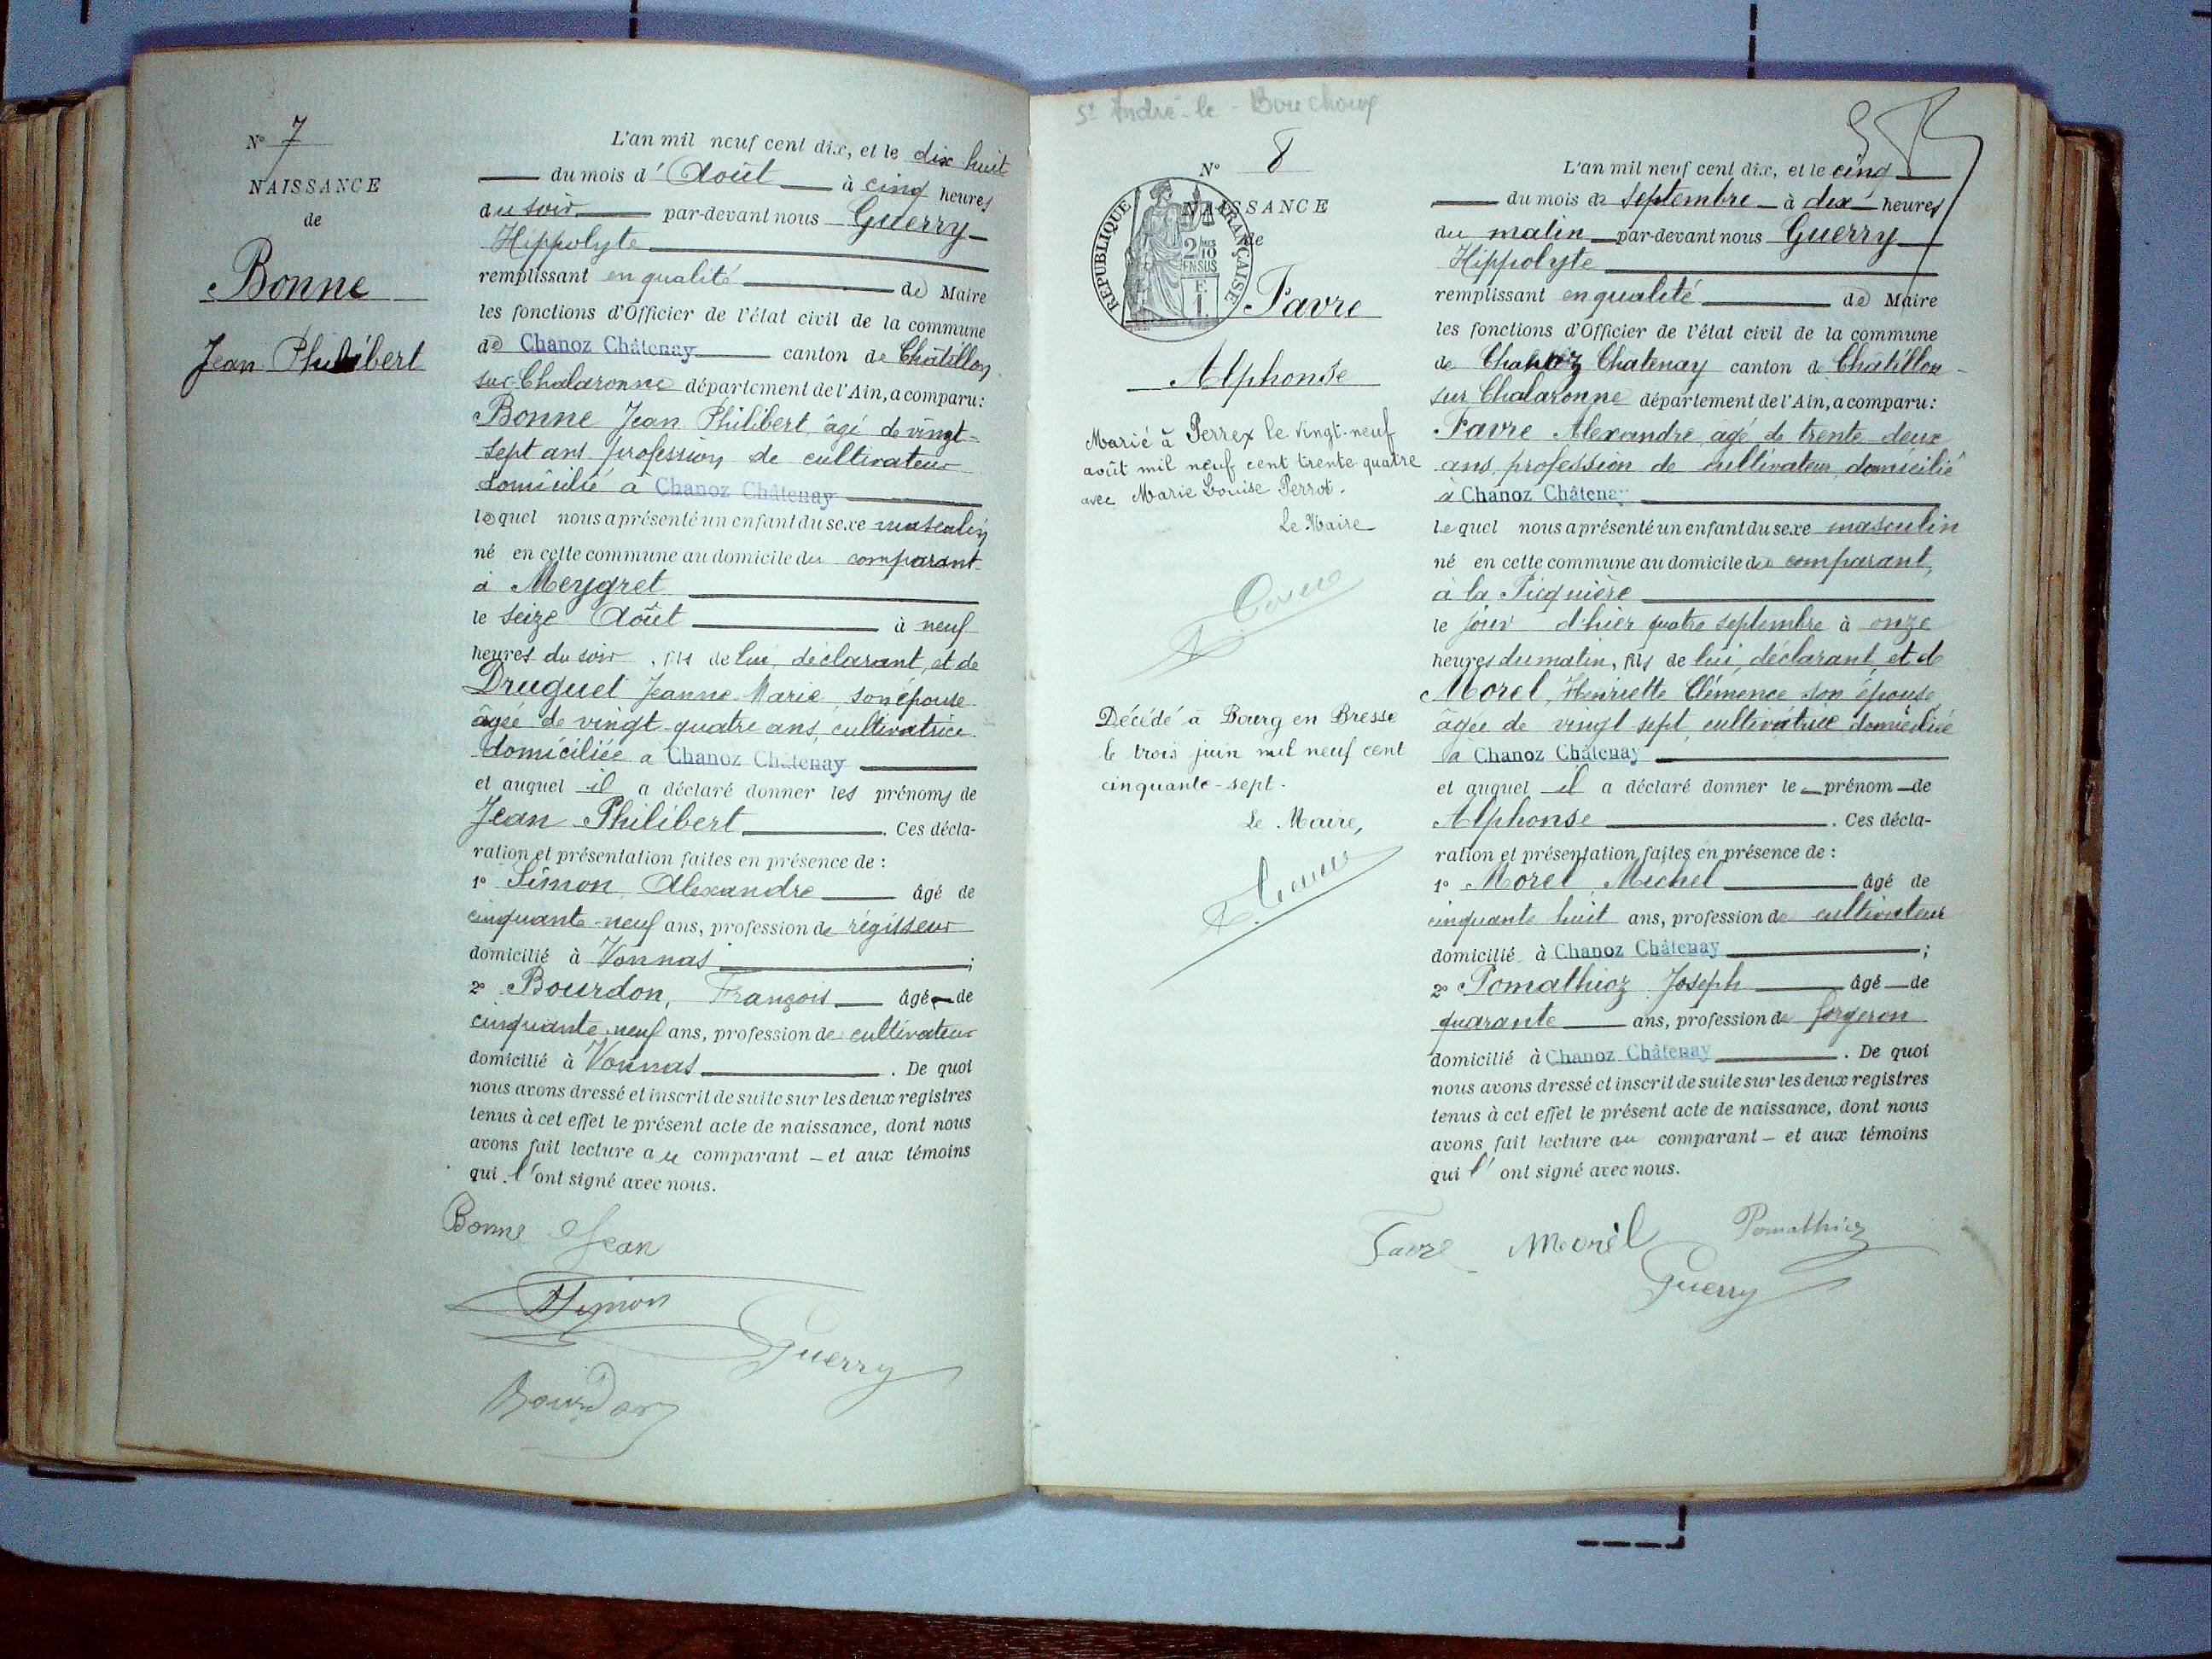 N° 7
NAISSANCE
de
Bonne
Jean Philibert
L'an mil neuf cent dix, et le dix huit
du mois d' Août à cinq heures
du soir par-devant nous Guerry
Hippolyte
remplissant en qualité de Maire
les fonctions d'Officier de l'état civil de la commune
de Chanoz Châtenay canton de Châtillon
sur-Chalaronne département de l'Ain, a comparu:
Bonne Jean Philibert, âgé de vingt-
sept ans profession de cultivateur
domicilié à Chanoz Châtenay
lequel nous a présenté un enfant du sexe masculin
né en cette commune au domicile du comparant
à Meygret
le seize Août à neuf
heures du soir, fils de lui, déclarant, et de
Druguet Jeanne Marie, son épouse
âgée de vingt-quatre ans, cultivatrice
domiciliée à Chanoz Châtenay
et auquel il a déclaré donner les prénoms de
Jean Philibert. Ces décla-
ration et présentation faites en présence de :
1° Simon Alexandre âgé de
cinquante-neuf ans, profession de régisseur
domicilié à Vonnas ;
2° Bourdon, François âgé de
cinquante neuf ans, profession de cultivateur
domicilié à Vonnas. De quoi
nous avons dressé et inscrit de suite sur les deux registres
tenus à cet effet le présent acte de naissance, dont nous
avons fait lecture au comparant – et aux témoins
qui l'ont signé avec nous.
Bonne Jean
Simon
Guerry
Bourdon
St André-le-Bouchoux
N° 8
NAISSANCE
de
RÉPUBLIQUE FRANÇAISE
2/10
EN SUS
F.
1.
Favre
Alphonse
Marié à Perrex le vingt-neuf
août mil neuf cent trente quatre
avec Marie Louise Perrot.
Le Maire
Décédé à Bourg en Bresse
le trois juin mil neuf cent
cinquante-sept.
Le Maire,
L'an mil neuf cent dix, et le cinq
du mois de Septembre à dix heures
du matin par-devant nous Guerry
Hippolyte
remplissant en qualité de Maire
les fonctions d'Officier de l'état civil de la commune
de Chanoz Chatenay canton de Châtillon
sur Chalaronne département de l'Ain, a comparu:
Favre Alexandre, âgé de trente deux
ans, profession de cultivateur domicilié
à Chanoz Châtenay
lequel nous a présenté un enfant du sexe masculin
né en cette commune au domicile du comparant,
à la Picquière
le jour d'hier quatre septembre à onze
heures du matin, fils de lui, déclarant, et de
Morel, Henriette Clémence son épouse
âgée de vingt sept, cultivatrice domiciliée
à Chanoz Châtenay
et auquel il a déclaré donner le prénom de
Alphonse. Ces décla-
ration et présentation faites en présence de :
1° Morel Michel âgé de
cinquante huit ans, profession de cultivateur
domicilié à Chanoz Châtenay ;
2° Pomathioz Joseph âgé de
quarante ans, profession de forgeron
domicilié à Chanoz Châtenay. De quoi
nous avons dressé et inscrit de suite sur les deux registres
tenus à cet effet le présent acte de naissance, dont nous
avons fait lecture au comparant – et aux témoins
qui l' ont signé avec nous.
Favre Morel Pomathioz
Guerry